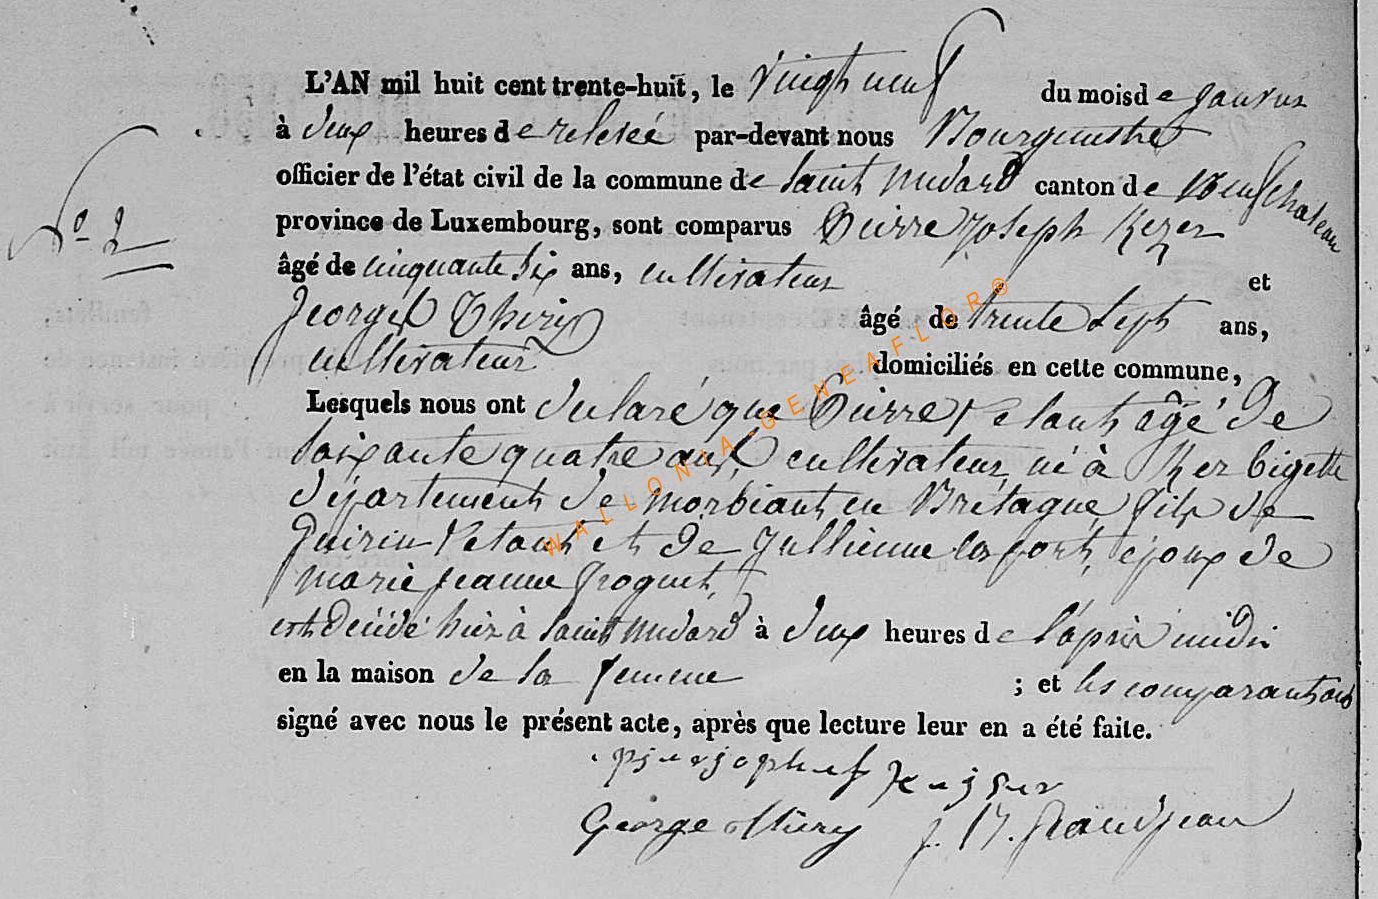 L'AN mil huit cent trente-huit, le vingt neuf du mois de janvier
à deux heures de relevée par-devant nous Bourguestre
officier de l'état civil de la commune de Saint Médard canton de Neufchateau
N° 2
province de Luxembourg, sont comparus Pierre Joseph Kezer
âgé de cinquante six ans, cultivateur et
George Thiry âgé de trente sept ans,
cultivateur domiciliés en cette commune,
Lesquels nous ont déclaré que Pierre Petant âgé de
soixante quatre ans, cultivateur, né à Kerbigette
département de Morbiant en Bretagne fils de
Guirin Petant et de Jullienne Lasfort, époux de
Marie Jeanne Froguet,
est décédé hier à Saint Médard à deux heures de l'après midi
en la maison de la femme ; et les comparants ont
signé avec nous le présent acte, après que lecture leur en a été faite.
George Thiry J. B. Grandjean
WALLONIA-GENEAFLOR©